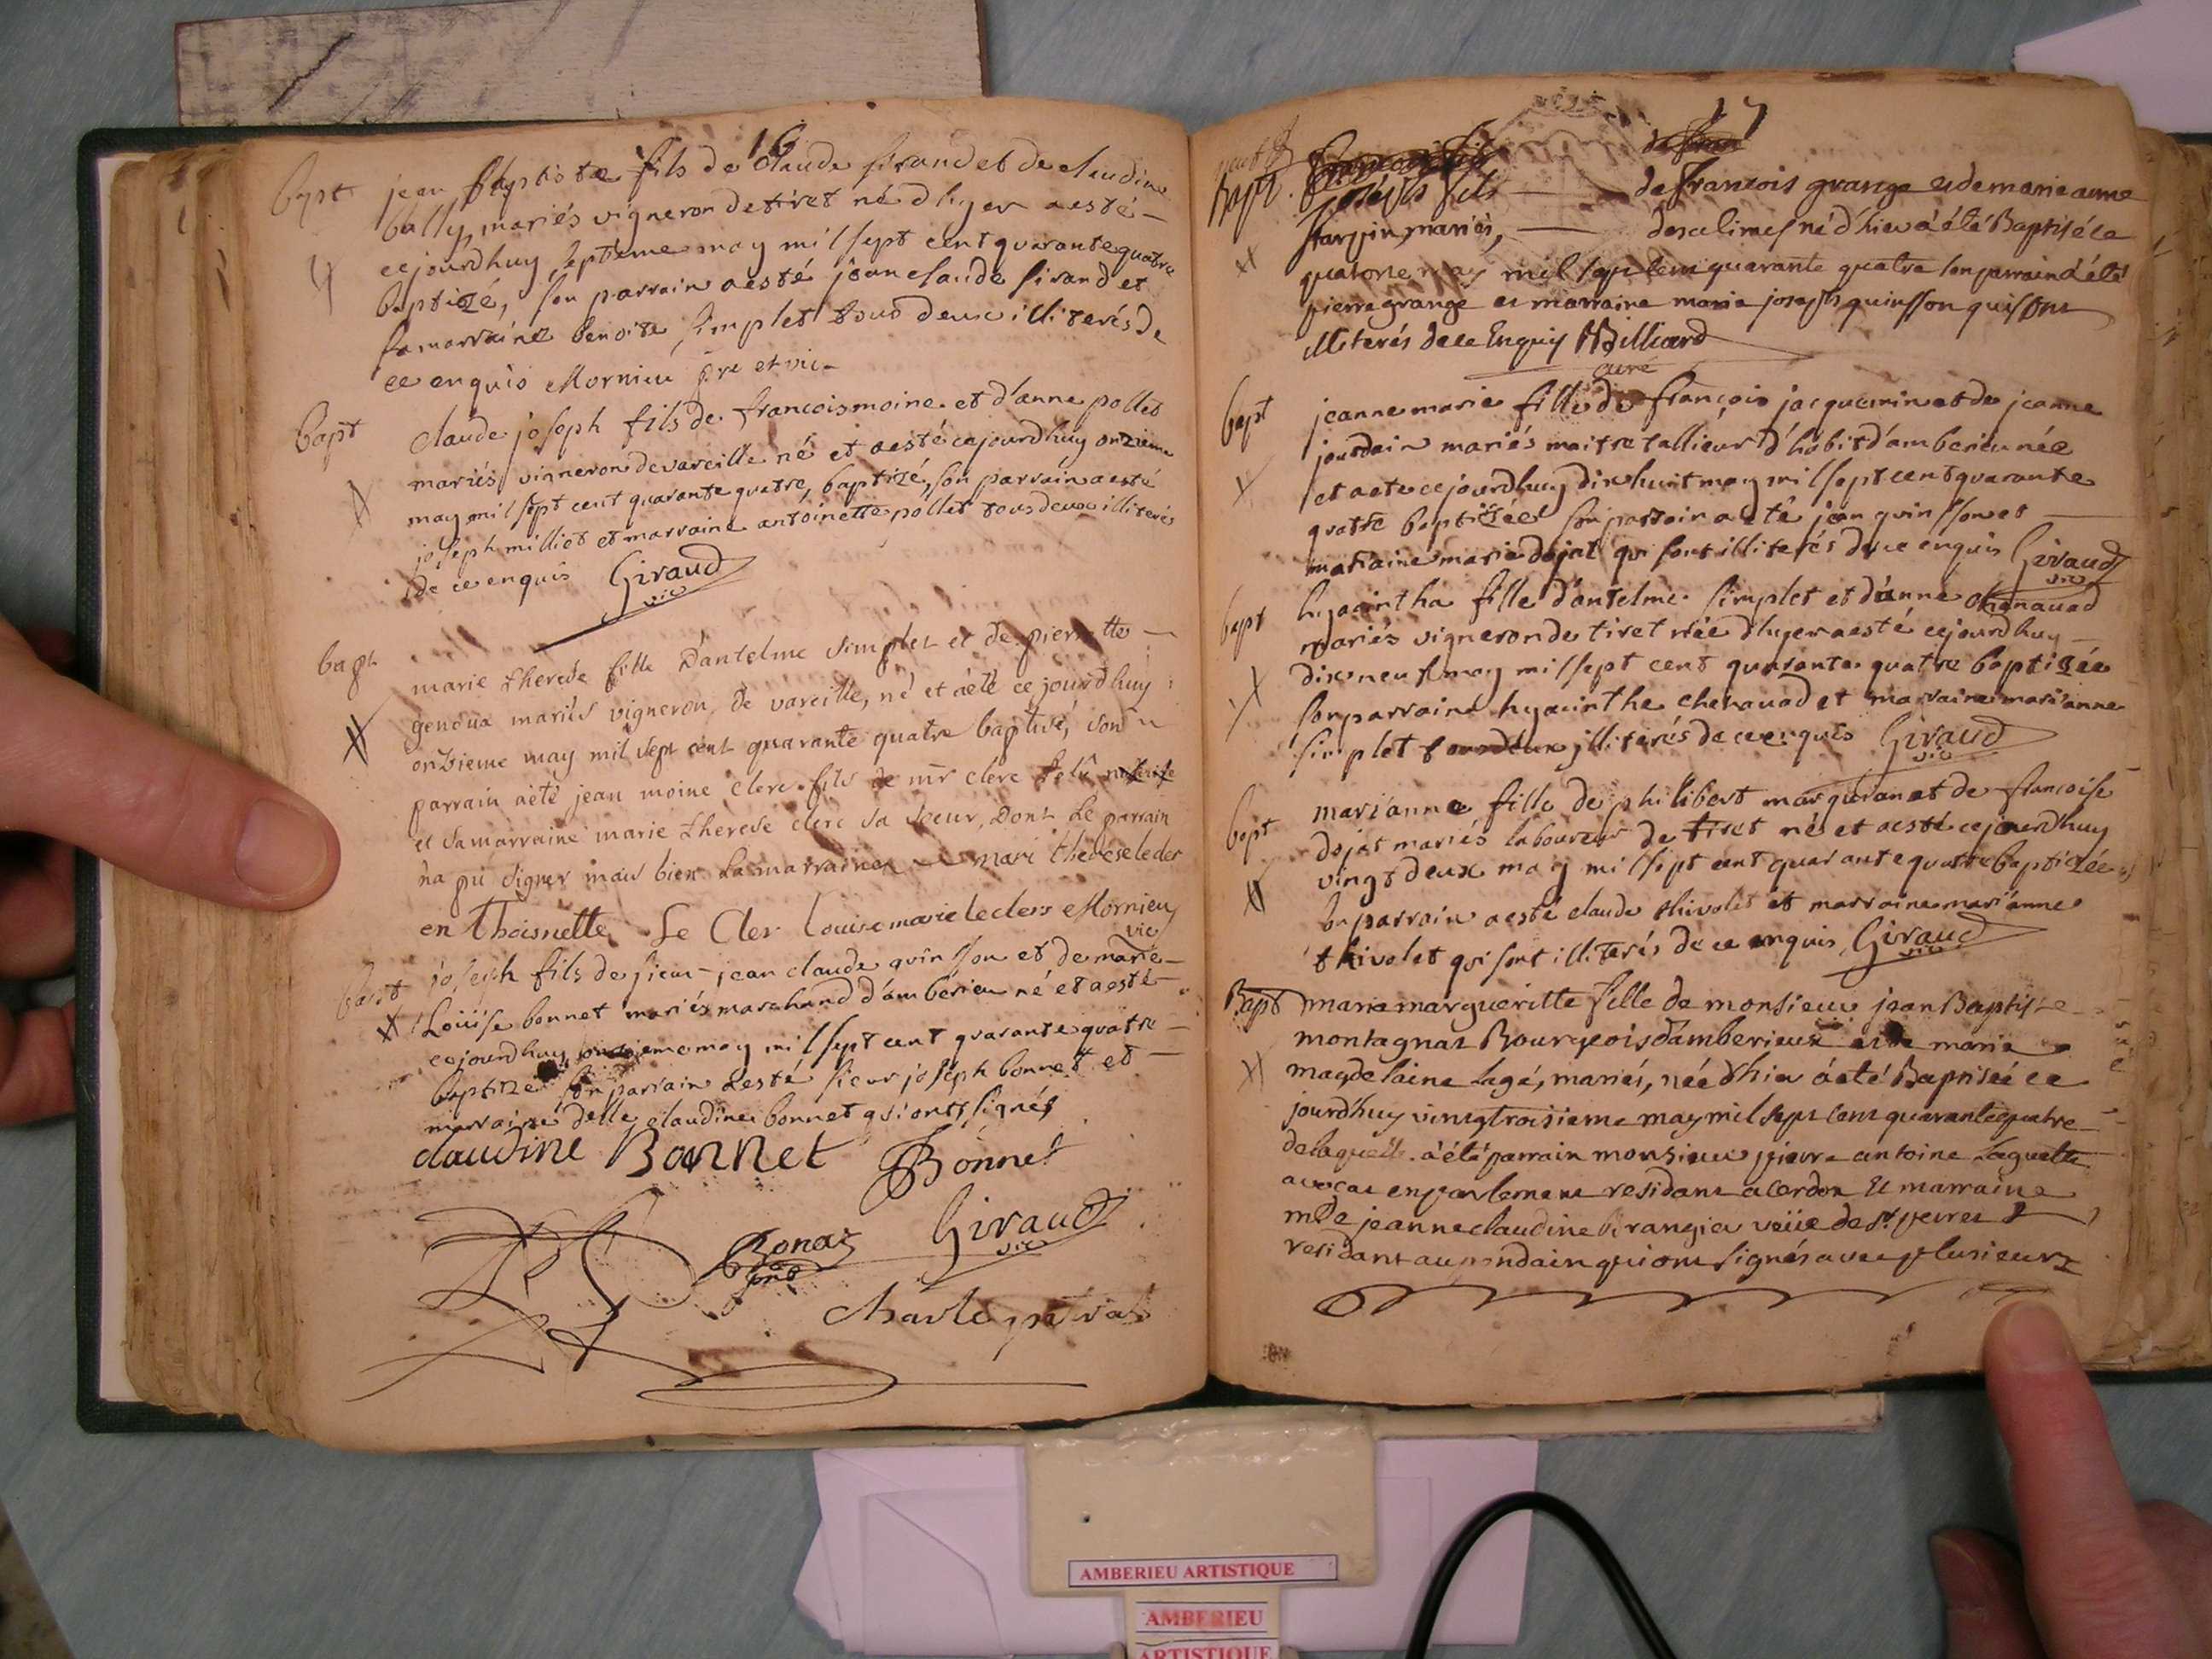 16
bapt jean baptiste fils de claude sirand et de claudine
bally, mariés vigneron de tiret né d'hyer a esté
cejourdhuy septieme may mil sept cent quarante quatre
baptizé, son parrain a esté jean claude sirand et
sa marraine benoite simplet tous deux illiterés de
ce enquis Mornieu pre et vic.
bapt claude joseph fils de francois moine et d'anne pollet
mariés vigneron de vareille né et a esté cejourdhuy onzieme
may mil sept cent quarante quatre, baptizé, son parrain a esté
joseph milliet et marraine antoinette pollet tous deux illiterés
de ce enquis Giraud
vic
bapt
marie therese fille D'antelme simplet et de pierrette
genoux mariés vigneron, de vareille, né et a été ce jourdhuy
onzieme may mil sept cent quarante quatre baptisé, son
parrain a été jean moine clerc fils de mr clerc
et sa marraine marie therese clerc sa soeur, Dont Le parrain
n'a pu signer mais bien La marraine mari therese le cler
en thoisnette Le Cler Louise marie leclers Mornieu
vic
bapt joseph fils de sieur jean claude quinson et de marie
Loüise bonnet mariés marchand d'amberieu né et a esté
cejourdhuy may mil sept cent quarante quatre
baptizé son parrain a esté sieur joseph bonnet et
marraine delle claudine bonnet qui ont signés
claudine Bonnet JBonnet
Bonaz Giraud
vic
Charle
17
Bapt. Joseph fils de francois grange et de marie anne
mariés, né d'hier à été Baptisé le
quatorze may mil sept cent quarante quatre son parrain à été
pierre grange et marraine marie joseph quinsson qui sont
illiterés de ce Enquis Billiard
curé
bapt jeanne marie fille de françois jacquemin et de jeanne
jourdain mariés maitre tallieur d'habit d'amberieu née
et a ete cejourdhuy dix huit may mil sept cent quarante
quatre baptizée son parrain a eté jean quinsson et
marraine marie dojat qui sont illiterés de ce enquis Giraud
vic
bapt hyacintha fille d'antelme simplet et d'anne chenavad
mariés vigneron de tiret née d'hyer a esté cejourdhuy
dix neuf may mil sept cent quarante quatre baptizée
son parrain hyacinthe chenavad et marraine mari'anne
simplet tous deux illiterés de ce enquis Giraud
vic
bapt mari'anne fille de philibert marguran et de francoise
dojat mariés laboureur de tiret né et a esté cejourdhuy
vingt deux may mil sept cent quarante quatre baptizée
son parrain a esté claude thivolet et marraine mari'anne
thivolet qui sont illiterés de ce enquis Giraud
vic
Bapt marie margueritte fille de monsieur jean Baptiste
montagnat Bourgeois d'amberieux et de marie
magdelaine Lagé, mariés, née d'hier à eté Baptiseé ce
jourdhuy vingt troisieme may mil sept cent quarante quatre
de laquelle à été parrain monsieur pierre antoine
avocat en parlement residant a cerdon Et marraine
mde jeanne claudine veüe de st
residant au pondain qui ont signés avec plusieurs
AMBERIEU ARTISTIQUE
AMBERIEU
ARTISTIQUE